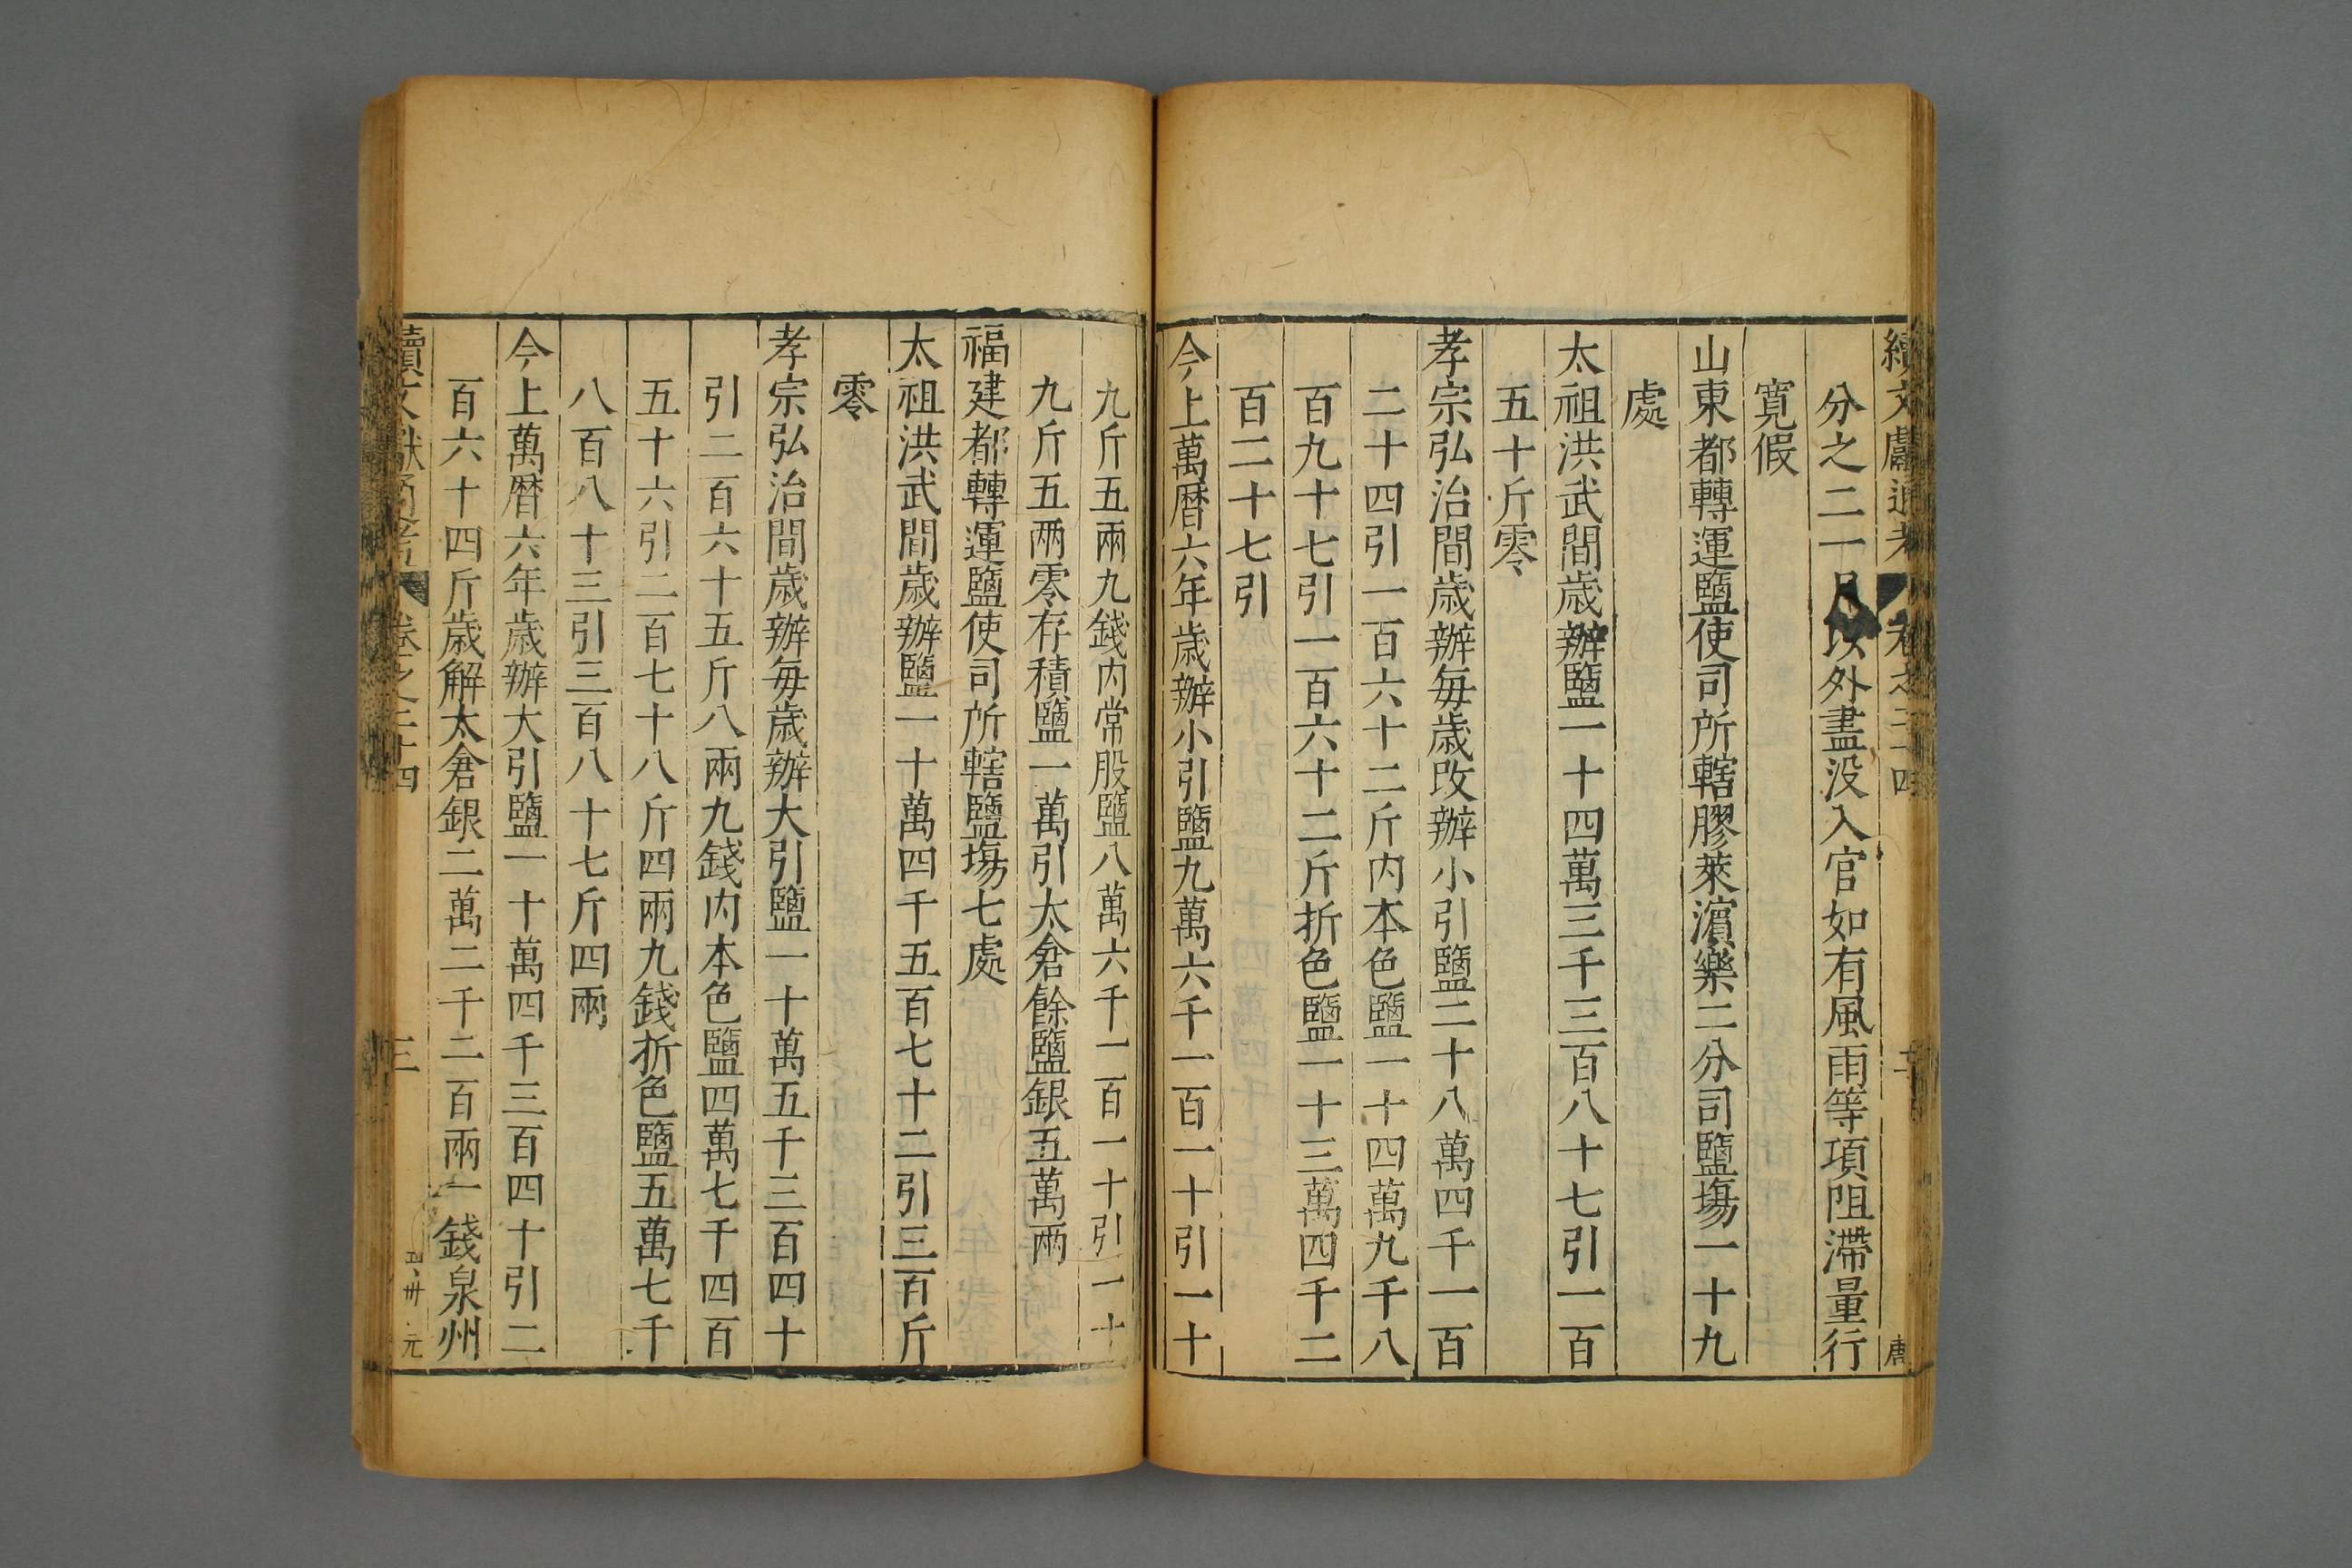 續文獻通考 卷之二十四 二 唐
分之二一月以外盡没入官如有風雨等項阻滯量行
寛假
山東都轉運鹽使司所轄膠萊濵樂二分司鹽塲一十九
處
太祖洪武間歲辦鹽一十四萬三千三百八十七引一百
五十斤零
孝宗弘治間歲辦每歲改辦小引鹽二十八萬四千一百
二十四引一百六十二斤内本色鹽一十四萬九千八
百九十七引一百六十二斤折色鹽一十三萬四千二
百二十七引
今上萬曆六年歲辦小引鹽九萬六千一百一十引一十
九斤五兩九錢内常股鹽八萬六千一百一十引一十
九斤五两零存積鹽一萬引太倉餘鹽銀五萬兩
福建都轉運鹽使司所轄鹽塲七處
太祖洪武間歲辦鹽一十萬四千五百七十二引三百斤
零
孝宗弘治間歲辦每歲辦大引鹽一十萬五千三百四十
引二百六十五斤八兩九錢内本色鹽四萬七千四百
五十六引二百七十八斤四兩九錢折色鹽五萬七千
八百八十三引三百八十七斤四兩
今上萬曆六年歲辦大引鹽一十萬四千三百四十引二
百六十四斤歲解太倉銀二萬二千二百兩一錢泉州
續文獻通考 卷之二十四 三